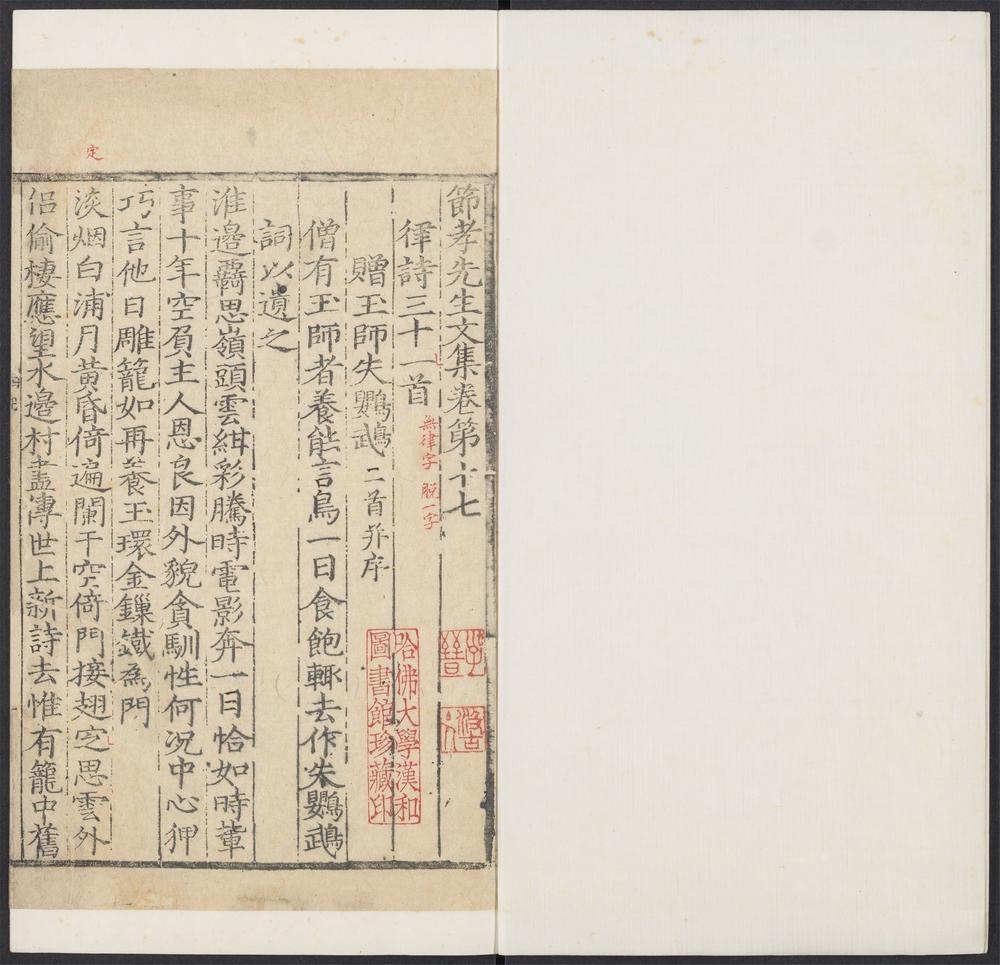 節孝先生文集卷第十七
律詩三十一首
無律字 脫一字
贈玉師失鸚鵡二首并序
僧有玉師者養能言鳥一日食飽輒去作失鸚鵡
詞以遺之
淮邊羇思嶺頭雲紺彩騰時電影奔一日恰如時輩
事十年空負主人恩良因外貌貪馴性何況中心狎
巧言他日雕籠如再養玉環金鏁鐵為門
淡烟白浦月黃昏倚遍闌干空倚門接翅㝎思雲外
定
侶偷棲應望水邊村盡傳世上新詩去惟有籠中舊
哈佛大學漢和
圖書館珍藏印